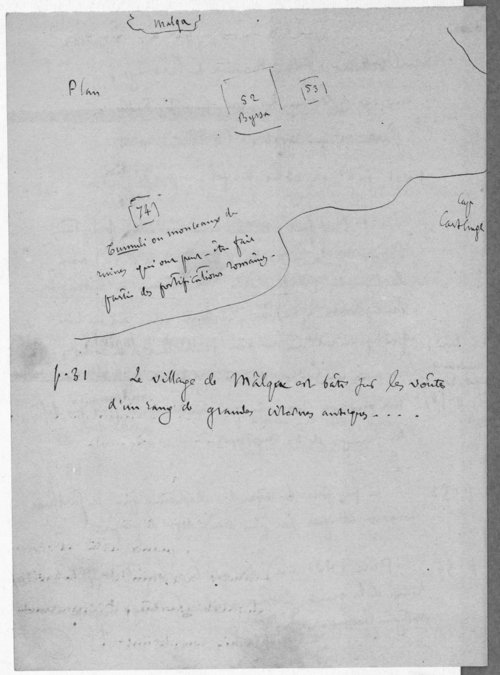 Malqa
Plan
52
Byrsa
53
Cap
Carthage
74
Tumuli ou monceaux de
ruines qui ont peut-être fait
partie des fortifications romaines.
p. 31 Le village de Mâlqa est bâti sur les voûtes
d'un rang de grandes citernes antiques....